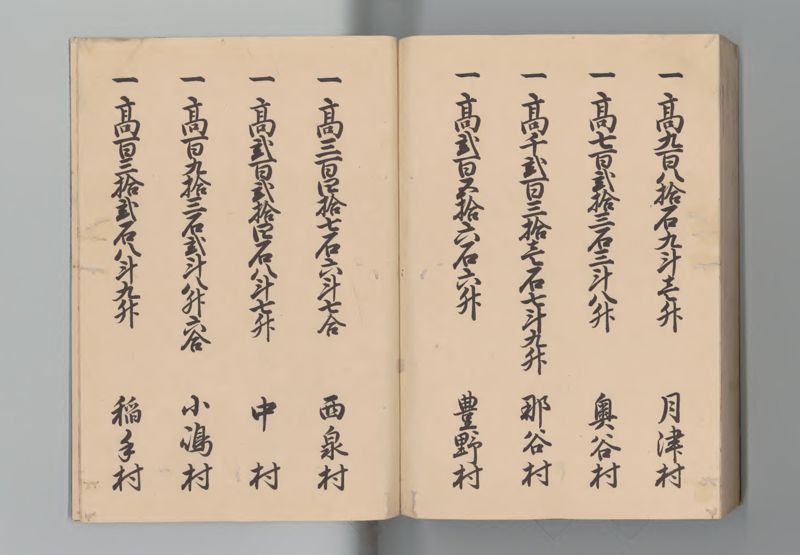 一 高九百八拾石九斗壱升 月津村
一 高七百弐拾三石三斗八升 奥谷村
一 高千弐百三拾壱石七斗九升 那谷村
一 高弐百五拾六石六升 豊野村
一 高三百四拾七石六斗七合 西泉村
一 高弐百弐拾四石八斗七升 中村
一 高百九拾三石弐斗八升六合 小嶋村
一 高百三拾弐石八斗九升 稲手村